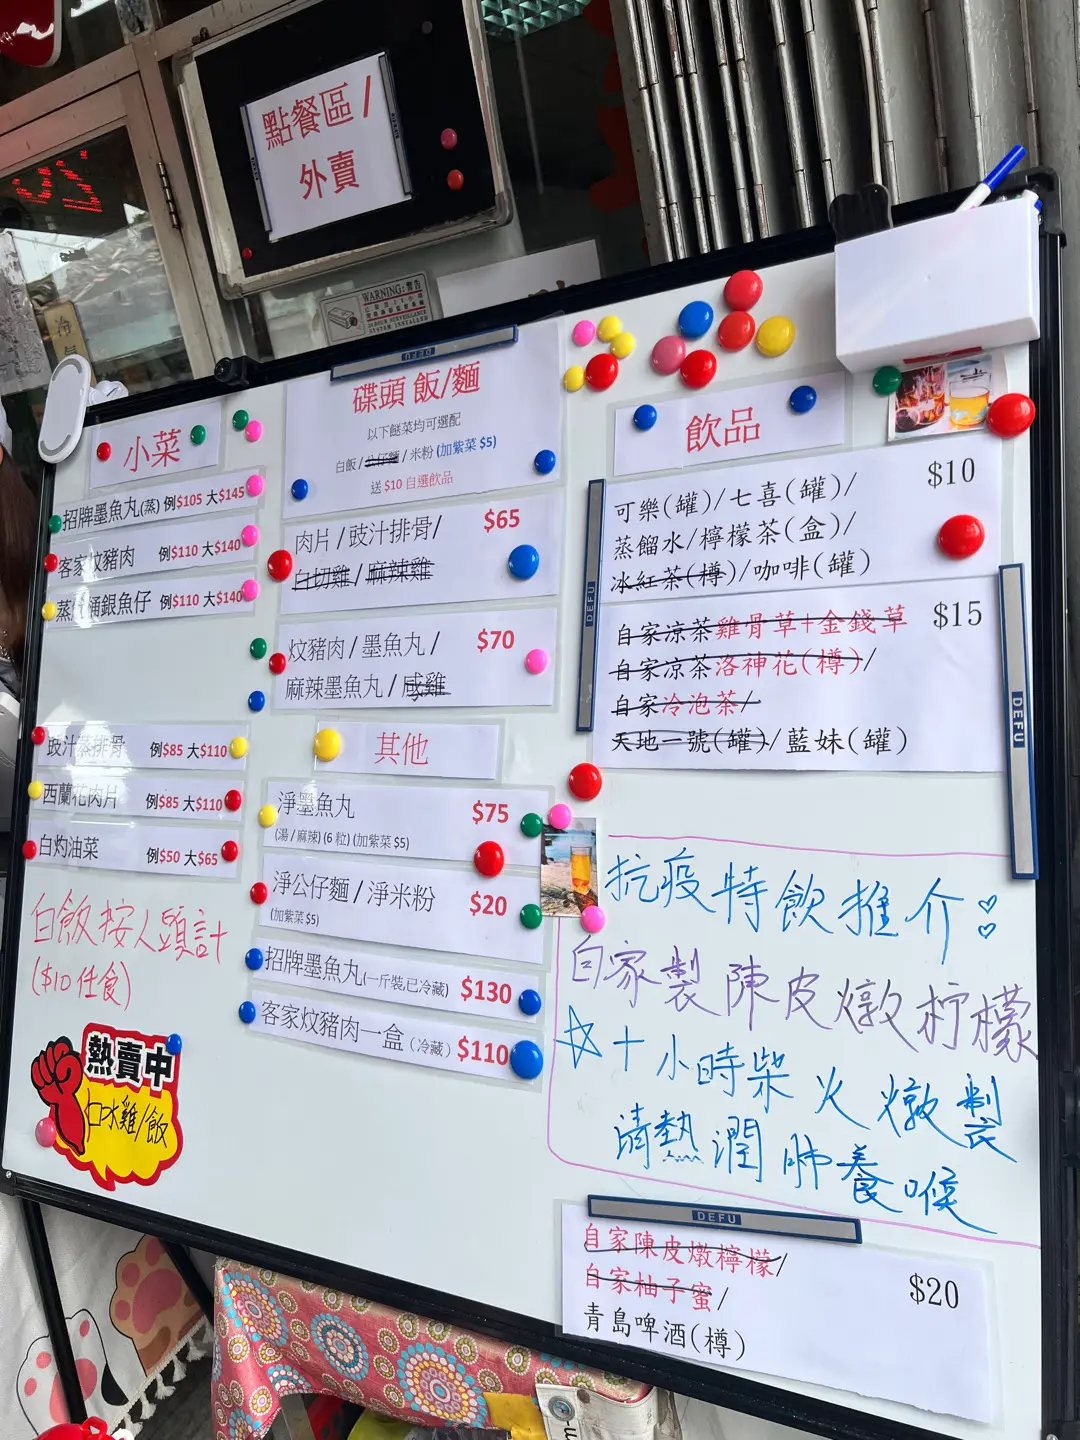 點餐區 /
外賣
WARNING: 警告
小菜
招牌墨魚丸(蒸) 例$105 大$145
客家炆豬肉 例$110 大$140
銀魚仔 例$110 大$140
豉汁蒸排骨 例$85 大$110
西蘭花肉片 例$85 大$110
白灼油菜 例$50 大$65
白飯按人頭計
($10 任食)
熱賣中
口水雞/飯
碟頭 飯/麵
以下餸菜均可選配
白飯 / 公仔麵 / 米粉 (加紫菜 $5)
送 $10 自選飲品
肉片 / 豉汁排骨 / $65
白切雞 / 麻辣雞
炆豬肉 / 墨魚丸 / $70
麻辣墨魚丸 / 咸雞
其他
淨墨魚丸 $75
(湯 / 麻辣) (6 粒) (加紫菜 $5)
淨公仔麵 / 淨米粉 $20
(加紫菜 $5)
招牌墨魚丸(一斤裝,已冷藏) $130
客家炆豬肉一盒 (冷藏) $110
飲品
可樂(罐)/七喜(罐)/ $10
蒸餾水/檸檬茶(盒)/
冰紅茶(樽)/咖啡(罐)
自家涼茶雞骨草+金錢草 $15
自家涼茶洛神花(樽)/
自家冷泡茶/
天地一號(罐)/藍妹(罐)
DEFU
DEFU
抗疫特飲推介
自家製陳皮燉柠檬
☆十小時柴火燉製
清熱潤肺養喉
DEFU
自家陳皮燉檸檬/
自家柚子蜜/ $20
青島啤酒(樽)